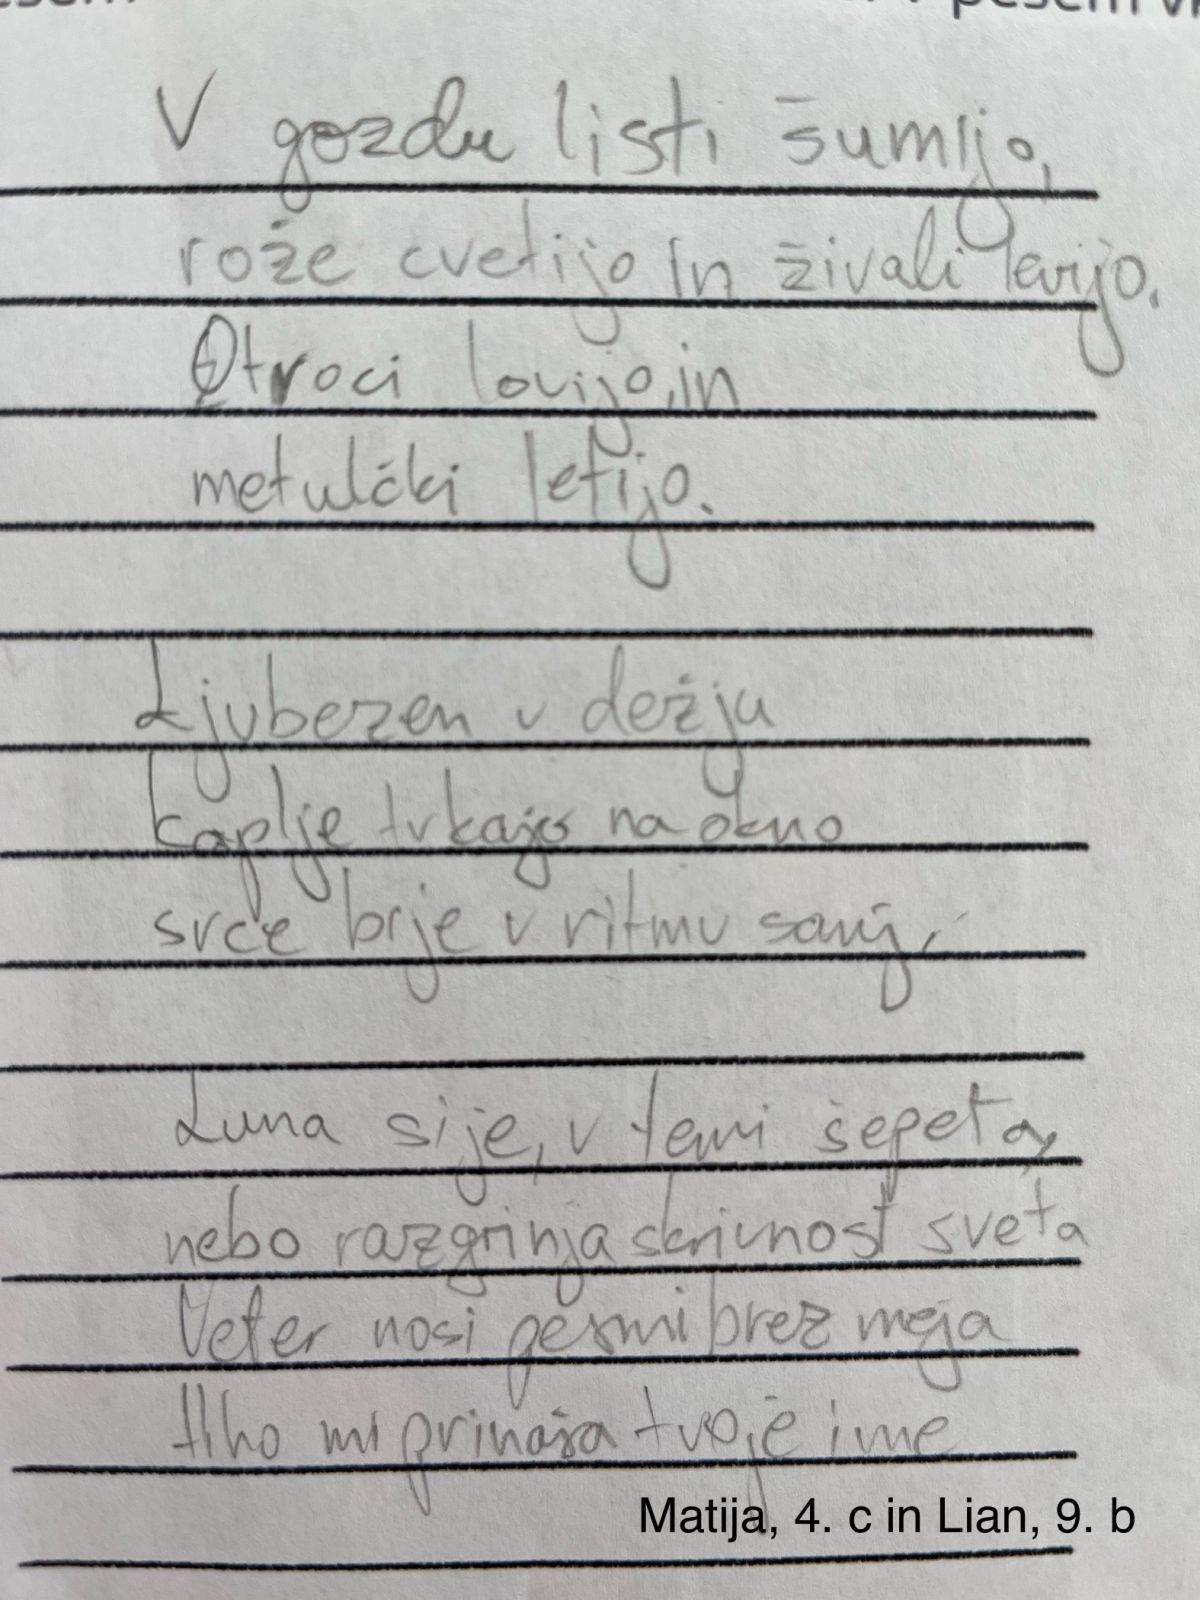 V gozdu listi šumijo,
rože cvetijo in živali levijo.
Otroci lovijo, in
metulčki letijo.
Ljubezen v dežju
kaplje trkajo na okno
srce brje v ritmu sanj,
Luna sije, v temi šepeta,
nebo razgrinja skrivnost sveta
Veter nosi pesmi brez meja
tiho mi prinaša tvoje ime
Matija, 4. c in Lian, 9. b